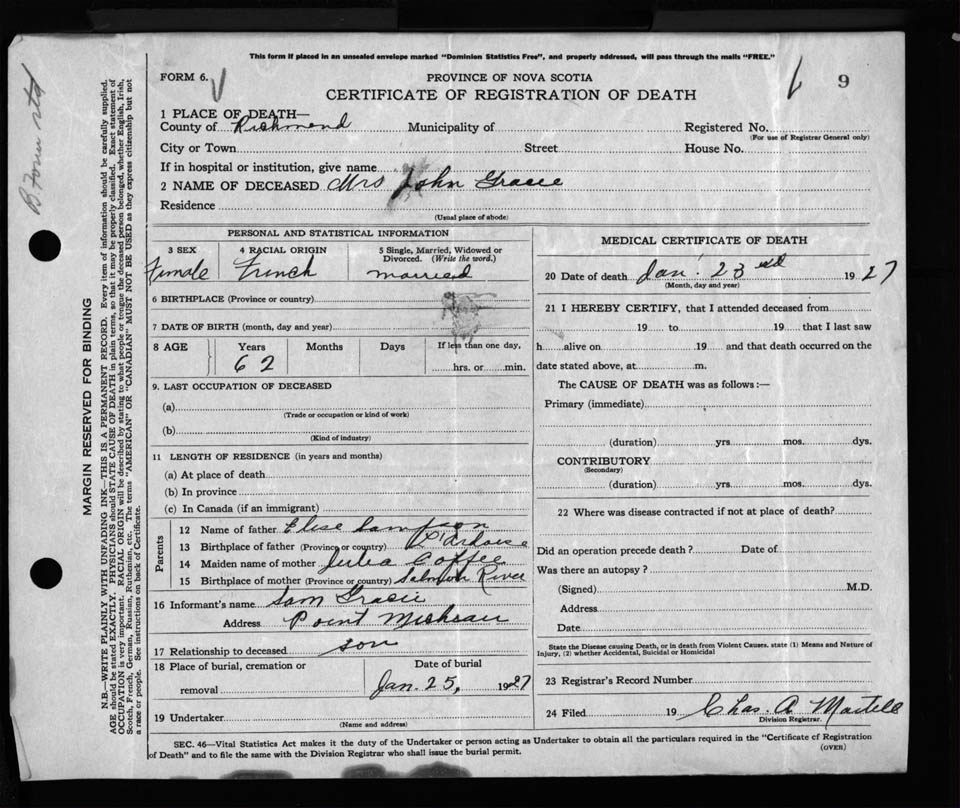 This form if placed in an unsealed envelope marked "Dominion Statistics Free", and properly addressed, will pass through the mails "FREE."
FORM 6.
PROVINCE OF NOVA SCOTIA
9
CERTIFICATE OF REGISTRATION OF DEATH
1 PLACE OF DEATH—
County of Richmond Municipality of Registered No.
(For use of Registrar General only)
City or Town Street House No.
If in hospital or institution, give name
2 NAME OF DECEASED Mrs John Grasie
Residence
(Usual place of abode)
PERSONAL AND STATISTICAL INFORMATION
3 SEX 4 RACIAL ORIGIN 5 Single, Married, Widowed or Divorced. (Write the word.)
Female French married
6 BIRTHPLACE (Province or country)
7 DATE OF BIRTH (month, day and year)
8 AGE Years Months Days If less than one day,
62 hrs. or min.
9. LAST OCCUPATION OF DECEASED
(a)
(Trade or occupation or kind of work)
(b)
(Kind of industry)
11 LENGTH OF RESIDENCE (in years and months)
(a) At place of death
(b) In province
(c) In Canada (if an immigrant)
Parents
12 Name of father Elise Sampson
13 Birthplace of father (Province or country) L'Ardoise
14 Maiden name of mother Julia Coffie
15 Birthplace of mother (Province or country) Salmon River
16 Informant's name Sam Grasie
Address Point Micheau
17 Relationship to deceased son
18 Place of burial, cremation or removal Date of burial
Jan. 25, 1927
19 Undertaker
(Name and address)
MEDICAL CERTIFICATE OF DEATH
20 Date of death Jan. 23rd 1927
(Month, day and year)
21 I HEREBY CERTIFY, that I attended deceased from
19 to 19 that I last saw
h alive on 19 and that death occurred on the
date stated above, at m.
The CAUSE OF DEATH was as follows:—
Primary (immediate)
(duration) yrs. mos. dys.
CONTRIBUTORY
(Secondary)
(duration) yrs. mos. dys.
22 Where was disease contracted if not at place of death?
Did an operation precede death? Date of
Was there an autopsy?
(Signed) M.D.
Address
Date
State the Disease causing Death, or in death from Violent Causes. state (1) Means and Nature of
Injury, (2) whether Accidental, Suicidal or Homicidal
23 Registrar's Record Number
24 Filed 19 Chas. A Martell
Division Registrar.
SEC. 46—Vital Statistics Act makes it the duty of the Undertaker or person acting as Undertaker to obtain all the particulars required in the "Certificate of Registration
of Death" and to file the same with the Division Registrar who shall issue the burial permit.
(OVER)
MARGIN RESERVED FOR BINDING
N.B.—WRITE PLAINLY WITH UNFADING INK—THIS IS A PERMANENT RECORD. Every item of information should be carefully supplied.
AGE should be stated EXACTLY. PHYSICIANS should STATE CAUSE OF DEATH in plain terms, so that it may be properly classified. Exact statement of
OCCUPATION is very important. RACIAL ORIGIN will be described by stating to what people or tongue the deceased person belonged, whether English, Irish,
Scotch, French, German, Russian, Ruthenian, etc. The terms "AMERICAN" OR "CANADIAN" MUST NOT BE USED as they express citizenship but not
a race or people. See instructions on back of Certificate.